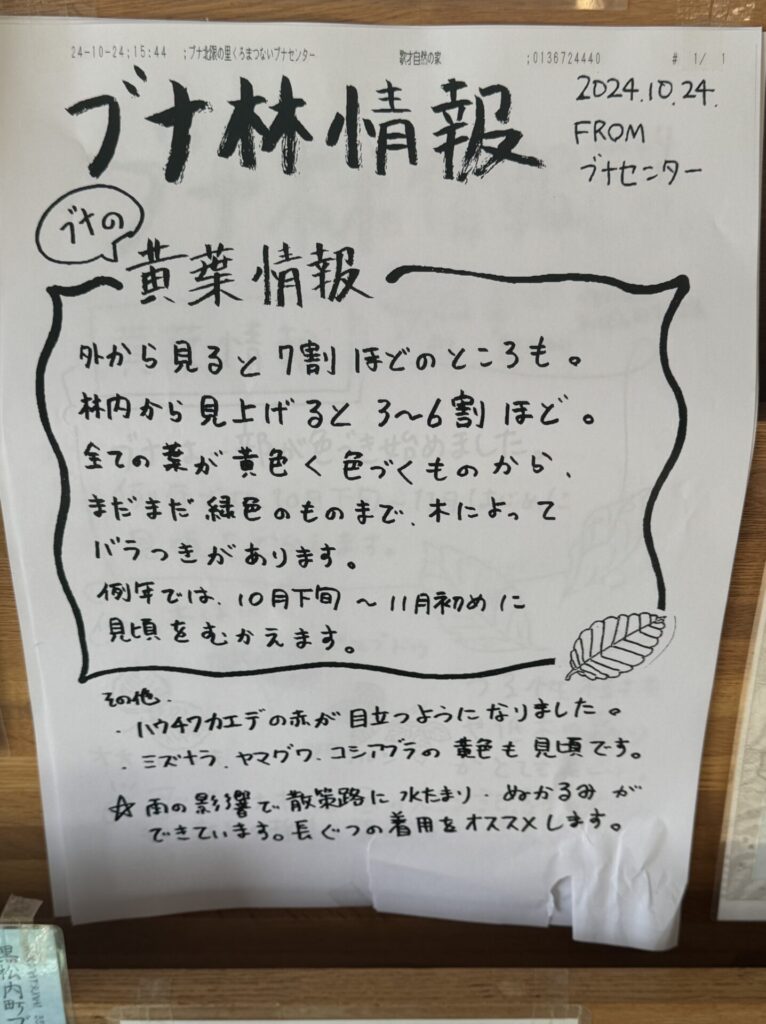 24-10-24;15:44 ;ブナ北限の里くろまつないブナセンター 歌才自然の家 ;0136724440 # 1/ 1
ブナ林情報
2024.10.24.
FROM
ブナセンター
ブナの
黄葉情報
外から見ると7割ほどのところも。
林内から見上げると3〜6割ほど。
全ての葉が黄色く色づくものから、
まだまだ緑色のものまで、木によって
バラつきがあります。
例年では、10月下旬〜11月初めに
見頃をむかえます。
その他.
・ハウチワカエデの赤が目立つようになりました。
・ミズナラ、ヤマグワ、コシアブラの黄色も見頃です。
☆雨の影響で散策路に水たまり・ぬかるみが
できています。長ぐつの着用をオススメします。
黒松内町ブ